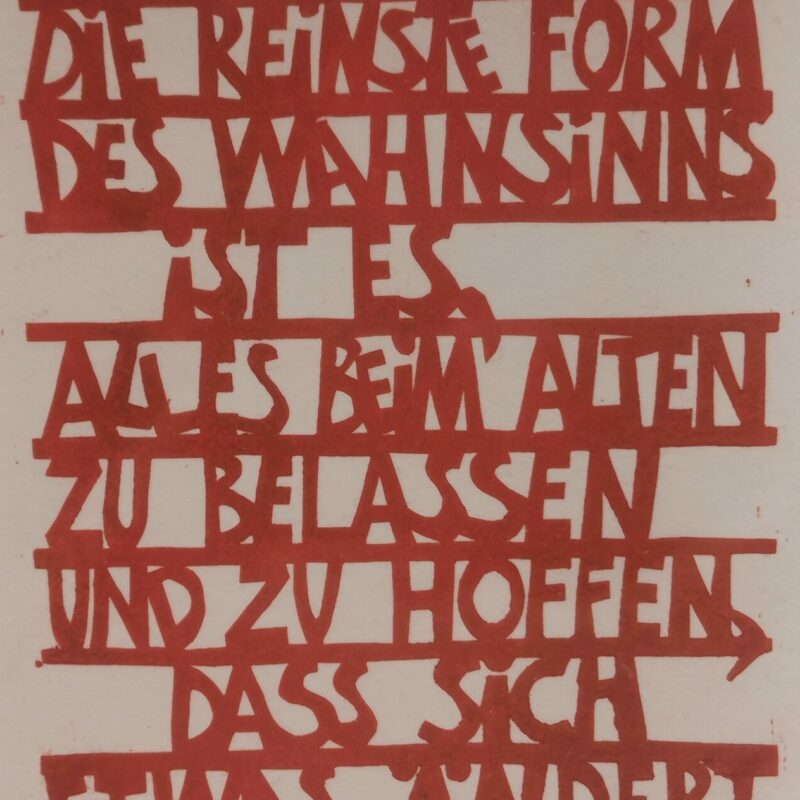 DiE REiNSTE FORM
DES WAHNSiNNS
iST ES,
ALLES BEiM ALTEN
ZU BELASSEN
UND ZU HOFFEN,
DASS SiCH
ETWAS ÄNDERT